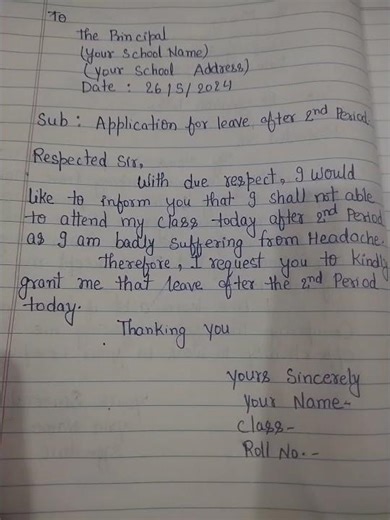 To
The Principal
(Your School Name)
(Your School Address)
Date : 26/5/2024
Sub : Application for leave after 2nd Period.
Respected Sir,
With due respect, I would
like to inform you that I shall not able
to attend my class today after 2nd Period
as I am badly suffering from Headache.
Therefore, I request you to kindly
grant me that leave after the 2nd Period
today.
Thanking you
Yours Sincerely
Your Name-
Class-
Roll No.-